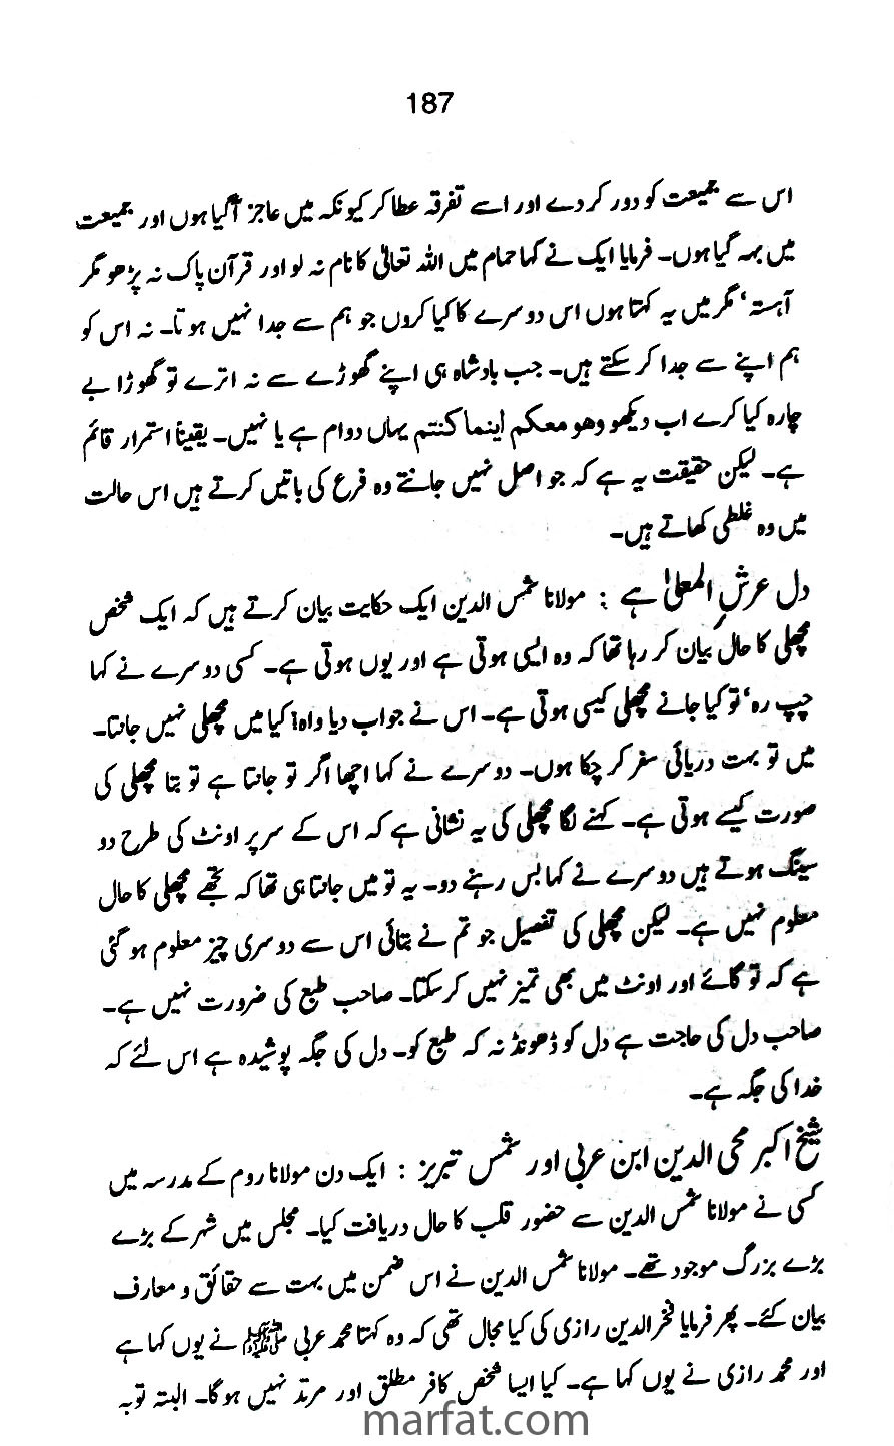 187
اس سے جمیعت کو دور کر دے اور اسے تفرقہ عطا کر کیونکہ میں عاجز آگیا ہوں اور جمیعت
میں بہہ گیا ہوں۔ فرمایا ایک نے کہا حمام میں اللہ تعالیٰ کا نام نہ لو اور قرآن پاک نہ پڑھو مگر
آہستہ‘ مگر میں یہ کہتا ہوں اس دوسرے کا کیا کروں جو ہم سے جدا نہیں ہوتا۔ نہ اس کو
ہم اپنے سے جدا کر سکتے ہیں۔ جب بادشاہ ہی اپنے گھوڑے سے نہ اترے تو گھوڑا بے
چارہ کیا کرے اب دیکھو وھو معکم اینما کنتم یہاں دوام ہے یا نہیں۔ یقیناً استمرار قائم
ہے۔ لیکن حقیقت یہ ہے کہ جو اصل نہیں جانتے وہ فرع کی باتیں کرتے ہیں اس حالت
میں وہ غلطی کھاتے ہیں۔
دل عرشِ المعلیٰ ہے : مولانا شمس الدین ایک حکایت بیان کرتے ہیں کہ ایک شخص
مچھلی کا حال بیان کر رہا تھا کہ وہ ایسی ہوتی ہے اور یوں ہوتی ہے۔ کسی دوسرے نے کہا
چپ رہ‘ تو کیا جانے مچھلی کیسی ہوتی ہے۔ اس نے جواب دیا واہ! کیا میں مچھلی نہیں جانتا۔
میں تو بہت دریائی سفر کر چکا ہوں۔ دوسرے نے کہا اچھا اگر تو جانتا ہے تو بتا مچھلی کی
صورت کیسے ہوتی ہے۔ کہنے لگا مچھلی کی یہ نشانی ہے کہ اس کے سر پر اونٹ کی طرح دو
سینگ ہوتے ہیں دوسرے نے کہا بس رہنے دو۔ یہ تو میں جانتا ہی تھا کہ تجھے مچھلی کا حال
معلوم نہیں ہے۔ لیکن مچھلی کی تفصیل جو تم نے بتائی اس سے دوسری چیز معلوم ہو گئی
ہے کہ تو گائے اور اونٹ میں بھی تمیز نہیں کر سکتا۔ صاحب طبع کی ضرورت نہیں ہے۔
صاحب دل کی حاجت ہے دل کو ڈھونڈ نہ کہ طبع کو۔ دل کی جگہ پوشیدہ ہے اس لئے کہ
خدا کی جگہ ہے۔
شیخ اکبر محی الدین ابن عربی اور شمس تبریز : ایک دن مولانا روم کے مدرسہ میں
کسی نے مولانا شمس الدین سے حضور قلب کا حال دریافت کیا۔ مجلس میں شہر کے بڑے
بڑے بزرگ موجود تھے۔ مولانا شمس الدین نے اس ضمن میں بہت سے حقائق و معارف
بیان کئے۔ پھر فرمایا فخر الدین رازی کی کیا مجال تھی کہ وہ کہتا محمد عربی ﷺ نے یوں کہا ہے
اور محمد رازی نے یوں کہا ہے۔ کیا ایسا شخص کافر مطلق اور مرتد نہیں ہوگا۔ البتہ توبہ
marfat.com